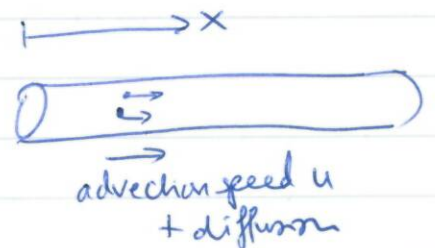 x
advection speed u
+ diffusion